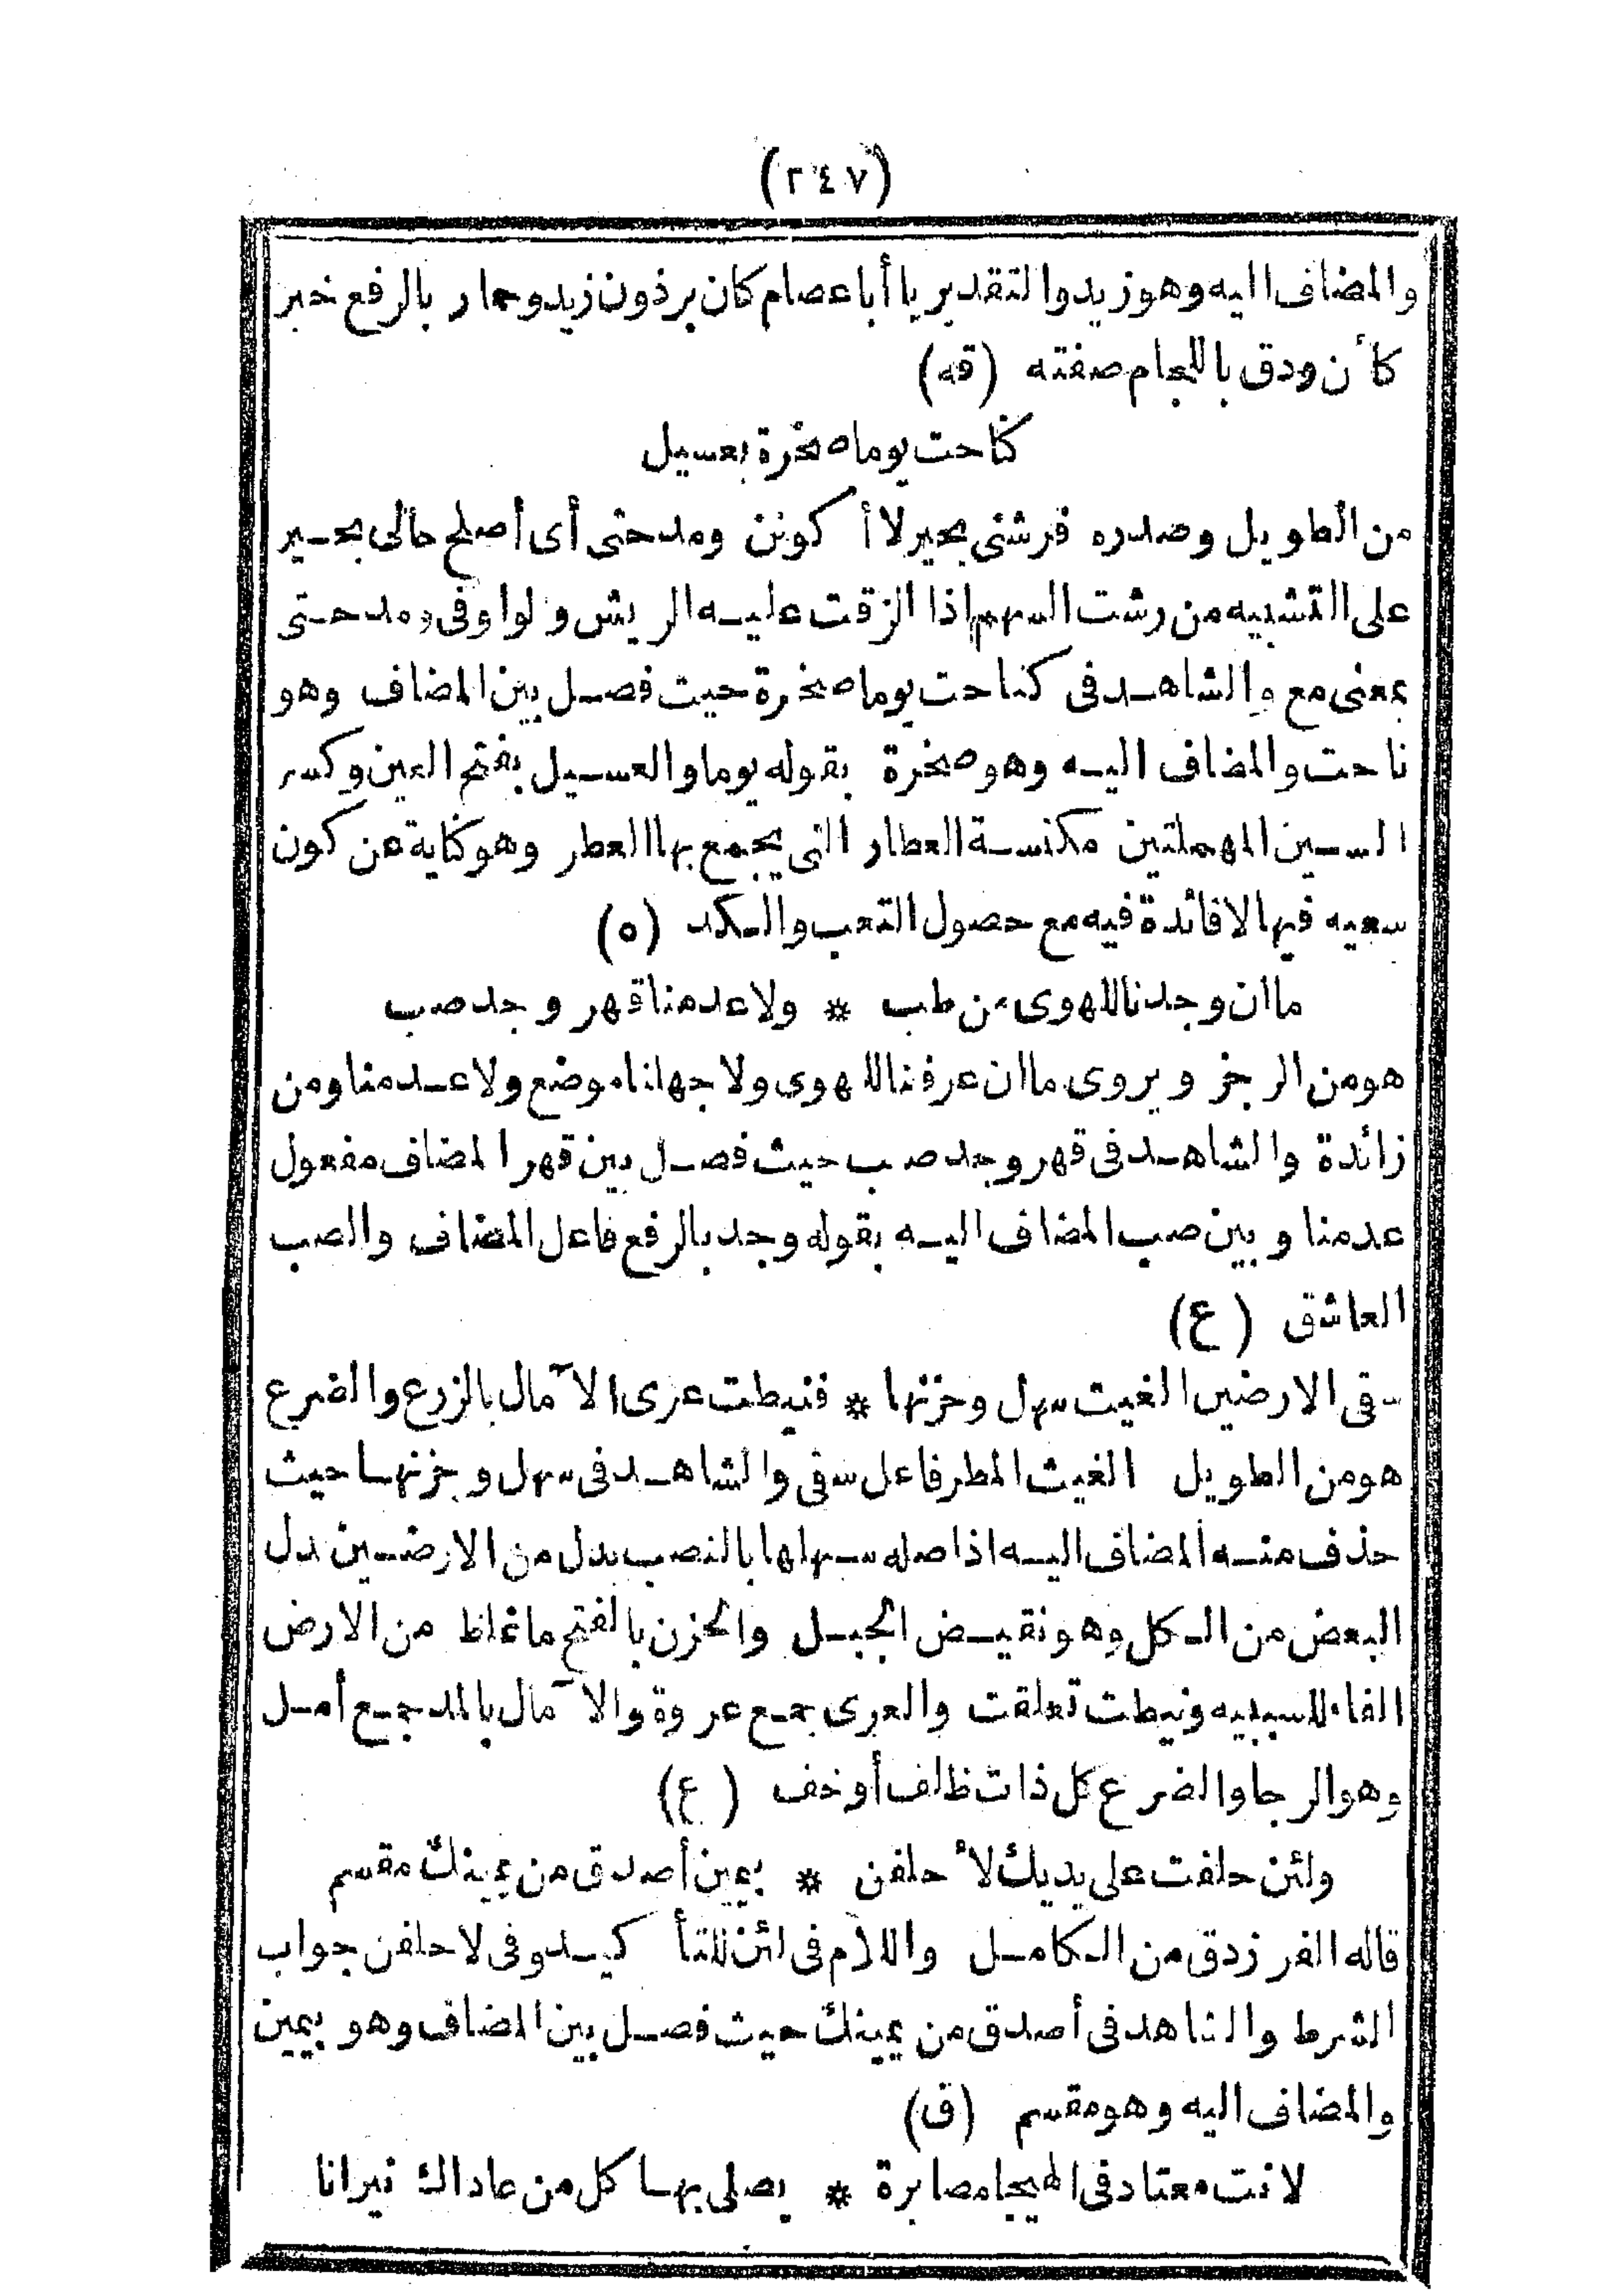 (٢٤٧)
والمضاف اليه وهو زيد والتقدير يا أبا عصام كان برذون زيد وحمار بالرفع خبر
كأن ودق باللجام صفته (قه)
كناحت يوما صخرة بعسيل
من الطويل وصدره فرشنى بخير لا أكونن ومدحتى أى أصلح حالى بخير
على التشبيه من رشت السهم اذا الزقت عليه الريش ولواو فى ومدحتى
بمعنى مع والشاهد فى كناحت يوما صخرة حيث فصل بين المضاف وهو
ناحت والمضاف اليه وهو صخرة بقوله يوما والعسيل بفتح العين وكسر
السين المهملتين مكنسة العطار التى يجمع بها العطر وهو كناية عن كون
سعيه فيها لا فائدة فيه مع حصول التعب والكد (ه)
ما ان وجدنا للهوى من طب * ولا عدمنا قهر وجد صب
هو من الرجز ويروى ما ان عرفنا للهوى ولا جهلنا موضع ولا عدمنا ومن
زائدة والشاهد فى قهر وجد صب حيث فصل بين قهر المضاف مفعول
عدمنا وبين صب المضاف اليه بقوله وجد بالرفع فاعل المضاف والصب
العاشق (ع)
سقى الارضين الغيث سهل وحزنها * فنيطت عرى الآمال بالزرع والضرع
هو من الطويل الغيث المطر فاعل سقى والشاهد فى سهل وحزنها حيث
حذف منه المضاف اليه اذ اصله سهلها بالنصب بدل من الارضين بدل
البعض من الكل وهو نقيض الجبل والحزن بالفتح ما غلظ من الارض
الفاء للسببيه ونيطت تعلقت والعرى جمع عروة والآمال بالمد جمع أمل
وهو الرجا والضرع كل ذات ظلف أو خف (ع)
ولئن حلفت على يديك لأحلفن * بيمين أصدق من يمينك مقسم
قاله الفرزدق من الكامل واللام فى لئن للتأكيد وفى لاحلفن جواب
الشرط والشاهد فى أصدق من يمينك حيث فصل بين المضاف وهو بيمين
والمضاف اليه وهو مقسم (ق)
لانت معتاد فى الهيجا مصابرة * يصلى بها كل من عاداك نيرانا